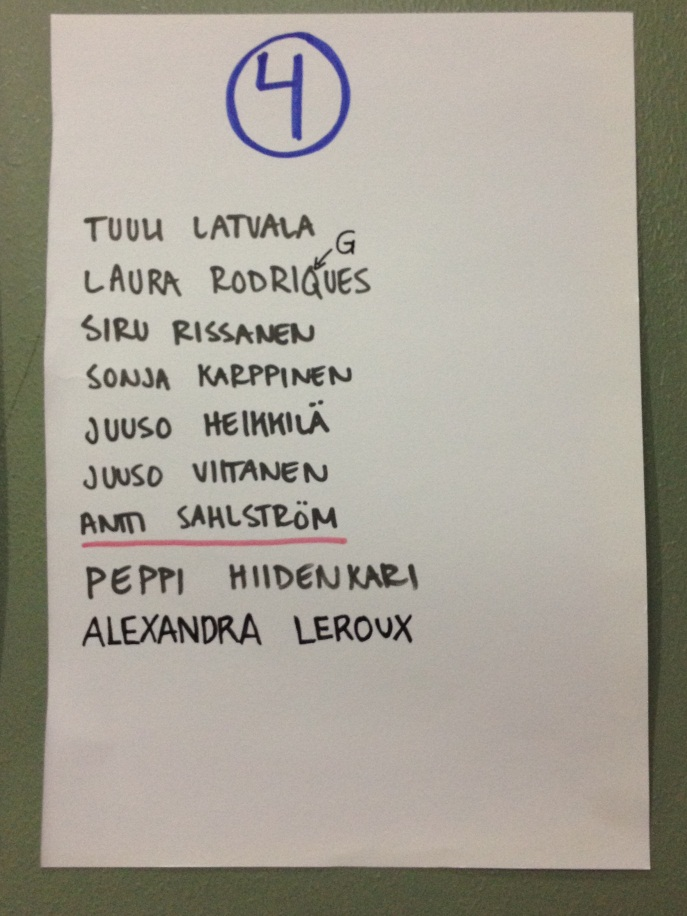 4
TUULI LATVALA
G
LAURA RODRIQUES
SIRU RISSANEN
SONJA KARPPINEN
JUUSO HEIKKILÄ
JUUSO VIITANEN
ANTTI SAHLSTRÖM
PEPPI HIIDENKARI
ALEXANDRA LEROUX